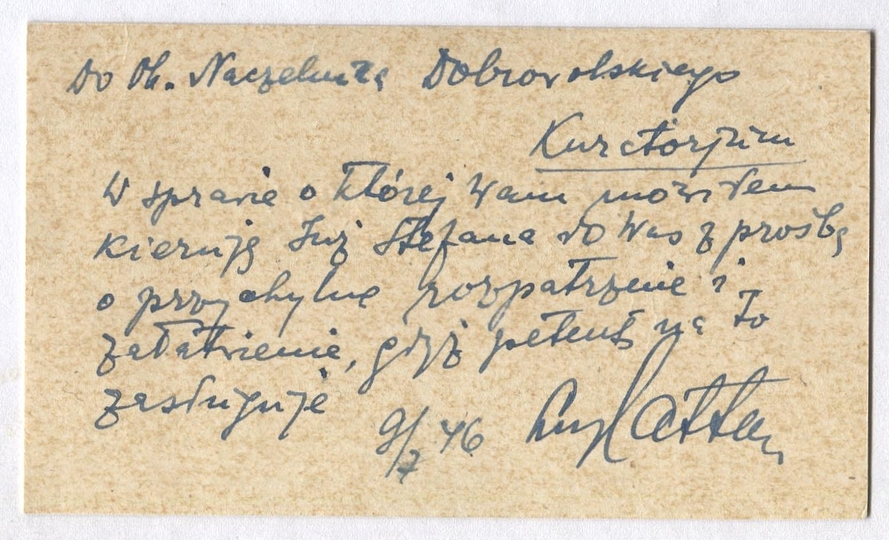 Do Ob. Naczelnika Dobrowolskiego
Kuratorjum
W sprawie o której Wam mówiłem
kieruję Inż Stefana do Was z prośbą
o przychylne rozpatrzenie i
załatwienie, gdyż petent na to
zasługuje
9/7 46